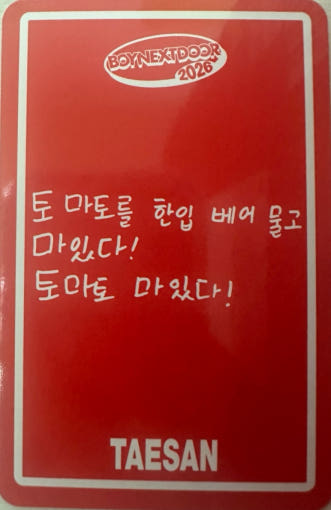 BOYNEXTDOOR
2026
토마토를 한입 베어 물고
마있다!
토마토 마있다!
TAESAN